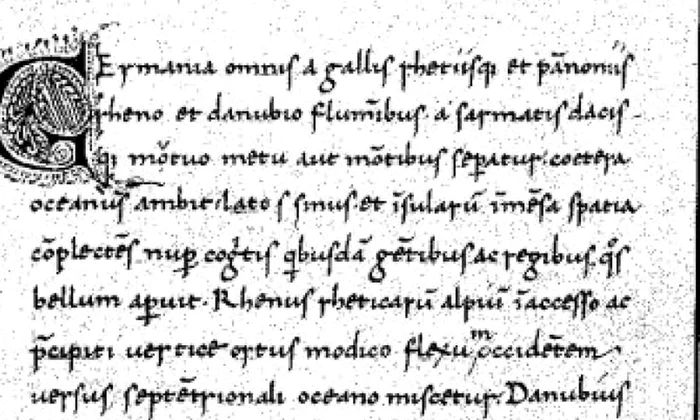 GErmania omnis a gallis rhetiisq; et pānoniis
rheno et danubio flumībus· a sarmatis dacis
q; mōtuo metu aut mōtibus sepatur: coetera
oceanus ambit latos sinus et īsularū īmēsa spatia
cōplectēs nup cogtis qbusdā gētibus ac regibus qs
bellum apuit· Rhenus rheticarū alpiū īaccesso ac
pcipiti uertice ortus modico flexu occidētem
uersus septētrionali oceano miscetur· Danubius